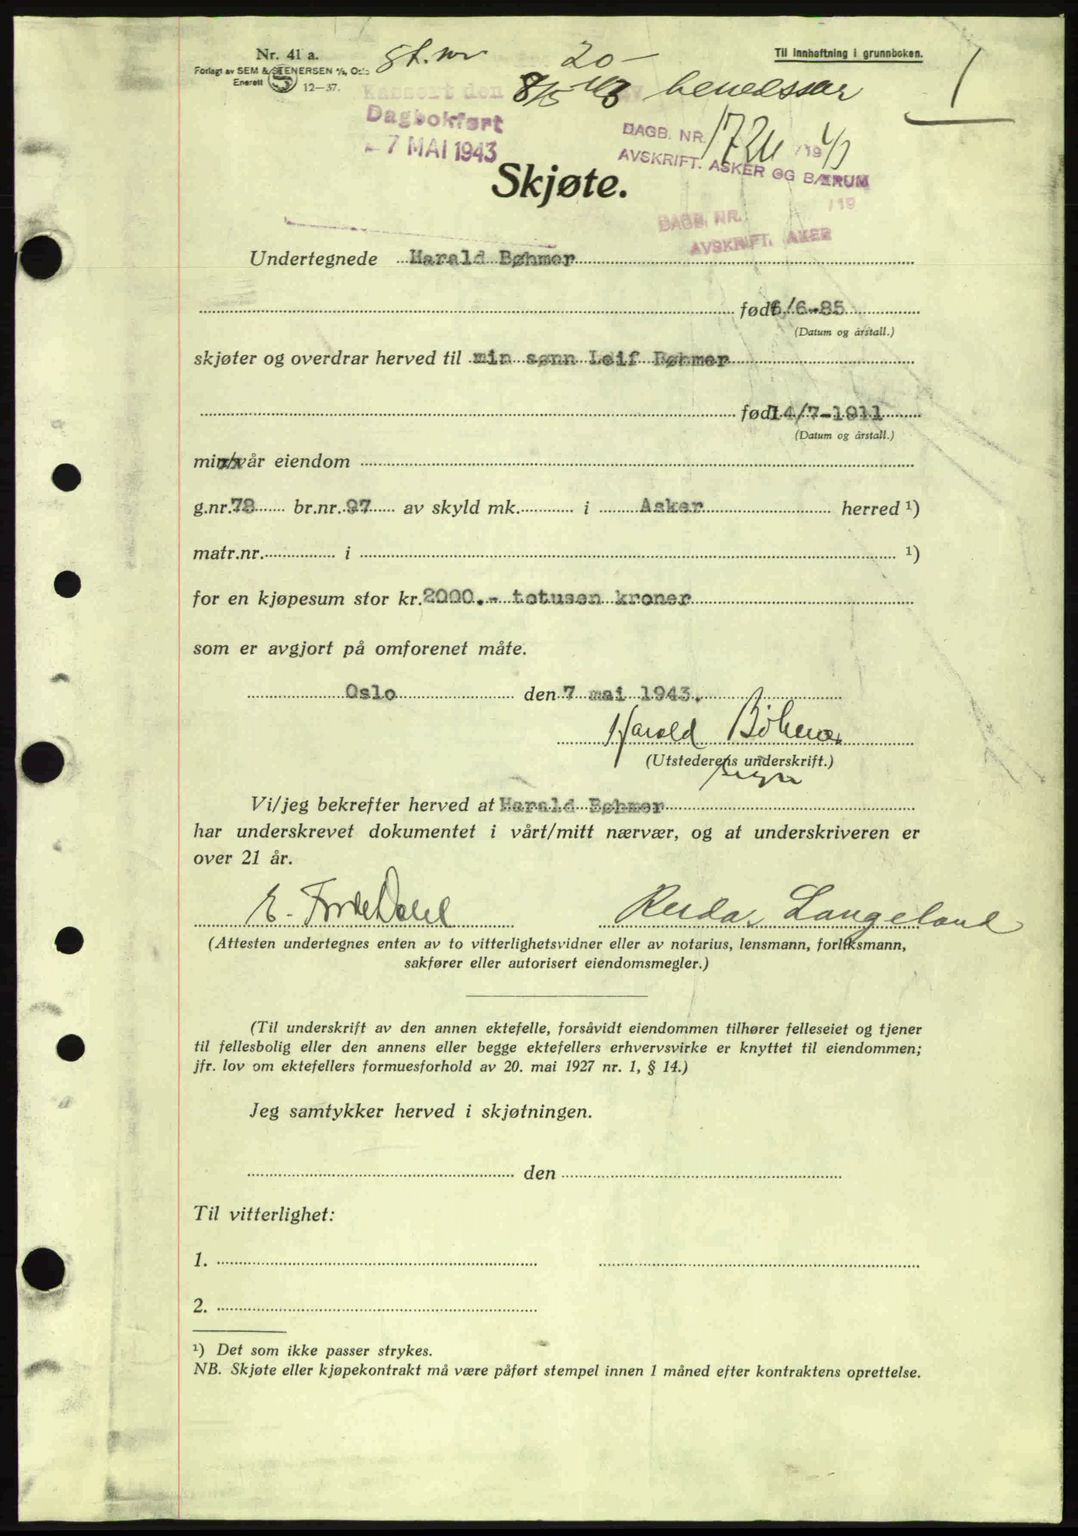 Nr. 41 a.
Forlagt av SEM & STENERSEN A/S, Oslo
Enerett 12—37.
St.nr 20-
Til innheftning i grunnboken.
1
Kassert den 8/5-43
Dagbokført
- 7 MAI 1943
DAGB. NR. /19 43
AVSKRIFT. ASKER OG BÆRUM
/19
DAGB. NR.
AVSKRIFT. AKER
Skjøte.
Undertegnede Harald Bøhmer
født 6/6-85
(Datum og årstall.)
skjøter og overdrar herved til min sønn Leif Bøhmer
født 14/7-1911
(Datum og årstall.)
min/vår eiendom
g.nr. 78 br.nr. 97 av skyld mk. i Asker herred ¹)
matr.nr. i ¹)
for en kjøpesum stor kr. 2000.- totusen kroner
som er avgjort på omforenet måte.
Oslo den 7 mai 1943.
Harald Bøhmer
(Utstederens underskrift.)
Vi/jeg bekrefter herved at Harald Bøhmer
har underskrevet dokumentet i vårt/mitt nærvær, og at underskriveren er
over 21 år.
E. Dahl Reidar Langeland
(Attesten undertegnes enten av to vitterlighetsvidner eller av notarius, lensmann, forliksmann,
sakfører eller autorisert eiendomsmegler.)
(Til underskrift av den annen ektefelle, forsåvidt eiendommen tilhører felleseiet og tjener
til fellesbolig eller den annens eller begge ektefellers erhvervsvirke er knyttet til eiendommen;
jfr. lov om ektefellers formuesforhold av 20. mai 1927 nr. 1, § 14.)
Jeg samtykker herved i skjøtningen.
den
Til vitterlighet:
1.
2.
¹) Det som ikke passer strykes.
NB. Skjøte eller kjøpekontrakt må være påført stempel innen 1 måned efter kontraktens oprettelse.